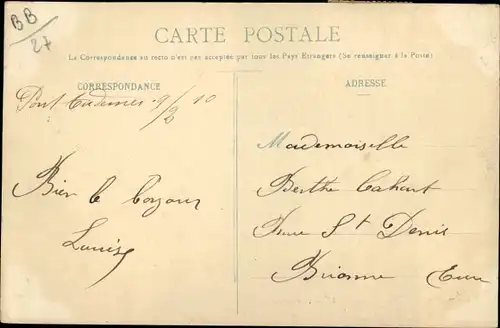 BB
27
CARTE POSTALE
La Correspondance au recto n'est pas acceptée par tous les Pays Etrangers (Se renseigner à la Poste)
CORRESPONDANCE
Pont Audemer 9/2 10
Bien le Bonjour
Louise
ADRESSE
Mademoiselle
Berthe Cahart
Rue St Denis
Brionne Eure